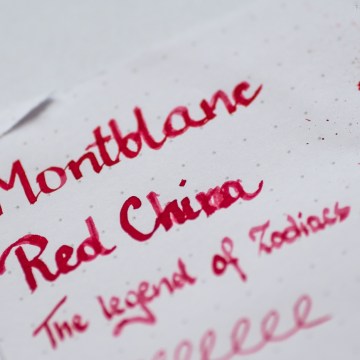 Montblanc
Red China
The legend of Zodiacs